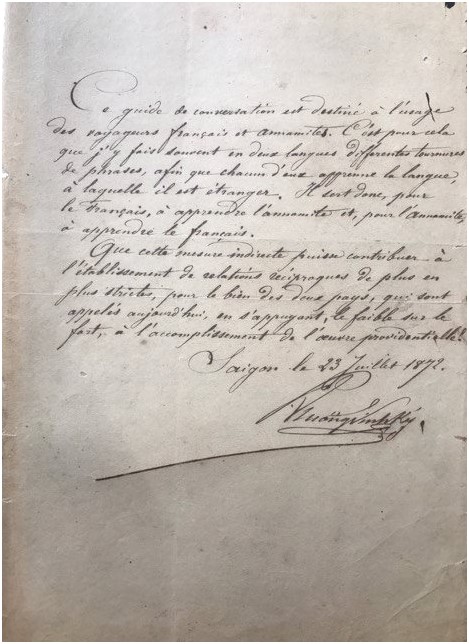 Ce guide de conversation est destiné à l'usage
des voyageurs français et annamites. C'est pour cela
que j'y fais souvent en deux langues différentes tournures
de phrases, afin que chacun d'eux apprenne la langue,
à laquelle il est étranger. Il sert donc, pour
le Français, à apprendre l'annamite et, pour l'Annamite,
à apprendre le français.
Que cette mesure indirecte puisse contribuer à
l'établissement de relations réciproques de plus en
plus strictes, pour le bien des deux pays, qui sont
appelés aujourd'hui, en s'appuyant, le faible sur le
fort, à l'accomplissement de l'œuvre providentielle.
Saigon le 23 Juillet 1872.
Truongvinhký